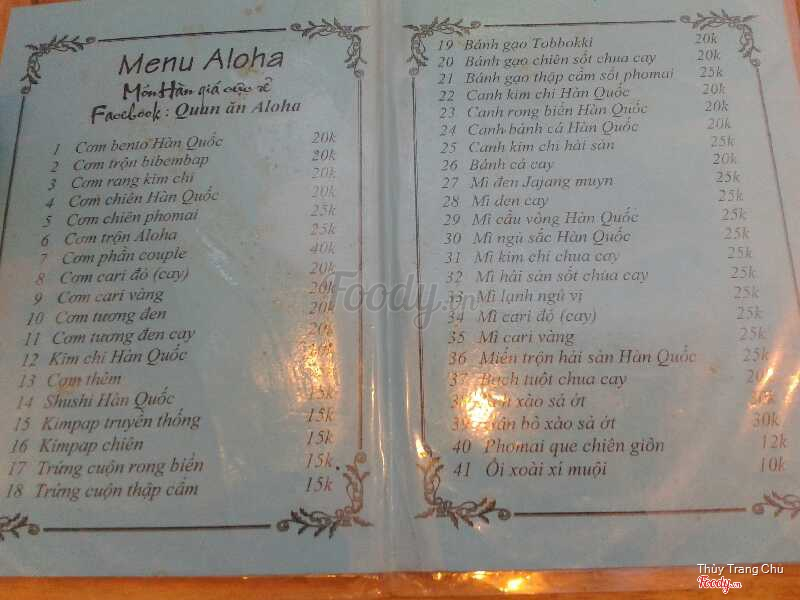 Menu Aloha
Món Hàn giá cực rẻ
Facebook : Quan ăn Aloha
1 Cơm bento Hàn Quốc 20k
2 Cơm trộn bibembap 20k
3 Cơm rang kim chi 20k
4 Cơm chiên Hàn Quốc 20k
5 Cơm chiên phomai 25k
6 Cơm trộn Aloha 25k
7 Cơm phần couple 40k
8 Cơm cari đỏ (cay) 20k
9 Cơm cari vàng 20k
10 Cơm tương đen 20k
11 Cơm tương đen cay 20k
12 Kim chi Hàn Quốc
13 Cơm thêm
14 Shushi Hàn Quốc 15k
15 Kimpap truyền thống 15k
16 Kimpap chiên 15k
17 Trứng cuộn rong biển 15k
18 Trứng cuộn thập cẩm 15k
19 Bánh gạo Tobbokki 20k
20 Bánh gạo chiên sốt chua cay 20k
21 Bánh gạo thập cẩm sốt phomai 25k
22 Canh kim chi Hàn Quốc 20k
23 Canh rong biển Hàn Quốc 20k
24 Canh bánh cá Hàn Quốc 20k
25 Canh kim chi hải sản 25k
26 Bánh cá cay 20k
27 Mì đen Jajang muyn 25k
28 Mì đen cay 25k
29 Mì cầu vồng Hàn Quốc 25k
30 Mì ngũ sắc Hàn Quốc 25k
31 Mì kim chi chua cay 25k
32 Mì hải sản sốt chua cay 25k
33 Mì lạnh ngũ vị 25k
34 Mì cari đỏ (cay) 25k
35 Mì cari vàng 25k
36 Miến trộn hải sản Hàn Quốc 25k
37 Bạch tuột chua cay
xào sả ớt
39 bò xào sả ớt 30k
40 Phomai que chiên giòn 12k
41 Ổi xoài xí muội 10k
Foody.vn
Thùy Trang Chu
Foody.vn